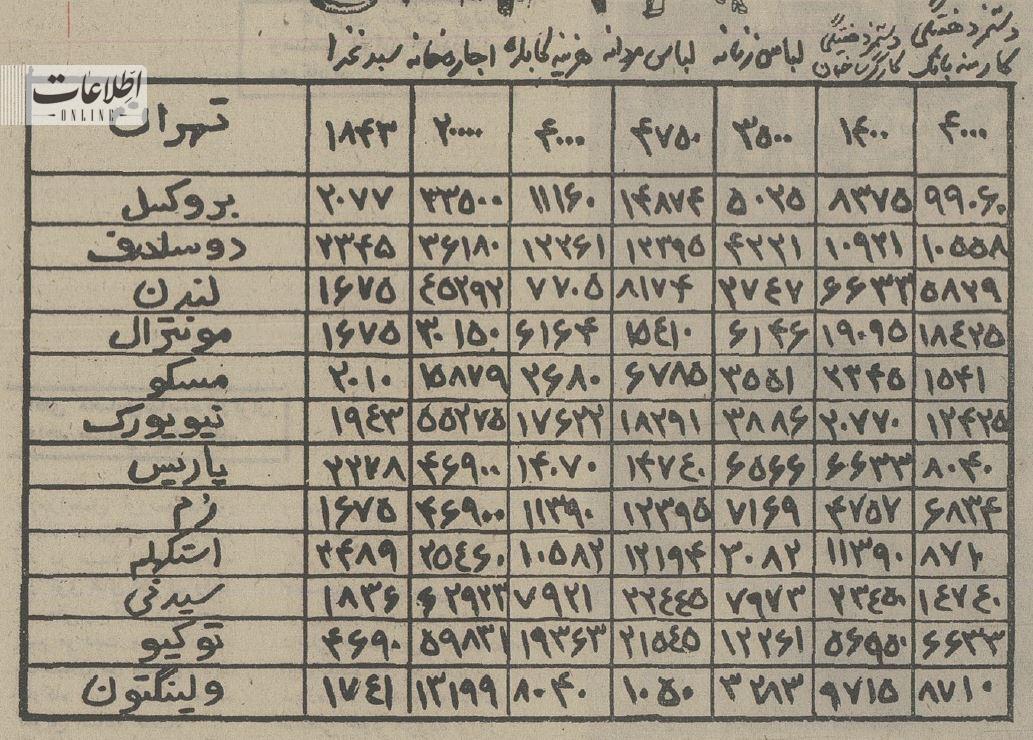 دستمزد هفتگی کارمند بانک دستمزد هفتگی کارگر ساختمان لباس زنانه لباس مردانه هزینه کاباره اجاره خانه سبد غذا
اطلاعات
ONLINE
تهران ۱۸۴۳ ۲۰۰۰۰ ۴۰۰۰ ۴۷۵۰ ۳۵۰۰ ۱۴۰۰ ۴۰۰۰
بروکسل ۲۰۷۷ ۳۳۵۰۰ ۱۱۱۶۰ ۱۴۸۷۴ ۵۰۲۵ ۸۳۷۵ ۹۹۰۶
دوسلدف ۲۳۴۵ ۳۶۱۸۰ ۱۲۲۶۱ ۱۲۳۹۵ ۴۲۲۱ ۱۰۹۲۱ ۱۰۵۵۸
لندن ۱۶۷۵ ۴۵۲۹۲ ۷۷۰۵ ۸۱۷۴ ۲۷۴۷ ۶۶۳۳ ۵۸۲۹
مونترال ۱۶۷۵ ۳۰۱۵۰ ۶۱۶۴ ۱۵۴۱۰ ۶۱۴۶ ۱۹۰۹۵ ۱۸۴۲۵
مسکو ۲۰۱۰ ۱۵۸۷۹ ۲۶۸۰ ۶۷۸۵ ۳۵۵۱ ۲۳۴۵ ۱۵۴۱
نیویورک ۱۹۴۳ ۵۵۲۷۵ ۱۷۶۲۲ ۱۸۲۹۱ ۳۸۸۶ ۲۰۷۷۰ ۱۲۴۲۵
پاریس ۲۲۷۸ ۴۶۹۰۰ ۱۴۰۷۰ ۱۴۷۴۰ ۶۵۶۶ ۶۶۳۳ ۸۰۴۰
رم ۱۶۷۵ ۴۶۹۰۰ ۱۱۳۹۰ ۱۲۳۹۵ ۷۱۶۹ ۴۷۵۷ ۶۸۳۴
استکهلم ۲۴۸۹ ۲۵۴۶۰ ۱۰۵۸۲ ۱۲۱۹۴ ۳۰۸۲ ۱۱۳۹۰ ۸۷۱۰
سیدنی ۱۸۳۶ ۶۲۹۲۳ ۷۹۲۱ ۲۲۴۴۵ ۷۹۷۳ ۲۳۴۵۰ ۱۴۷۴۰
توکیو ۴۶۹۰ ۵۹۸۳۱ ۱۹۳۶۳ ۲۱۵۴۵ ۱۲۲۶۱ ۵۶۹۵۰ ۶۶۳۳
ولینگتون ۱۷۴۱ ۱۳۱۹۹ ۸۰۴۰ ۱۰۵۰ ۳۲۸۳ ۹۷۱۵ ۸۷۱۰